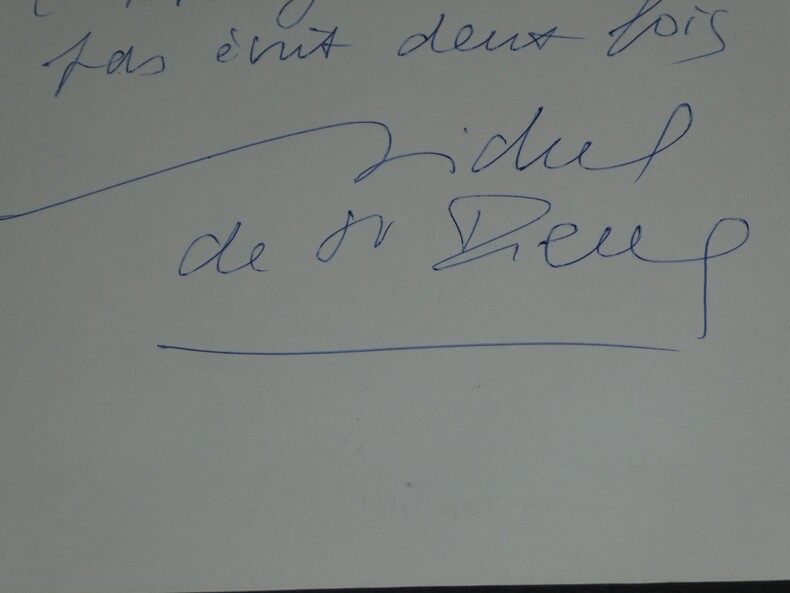 pas écrit deux fois
Michel
de St Pierre